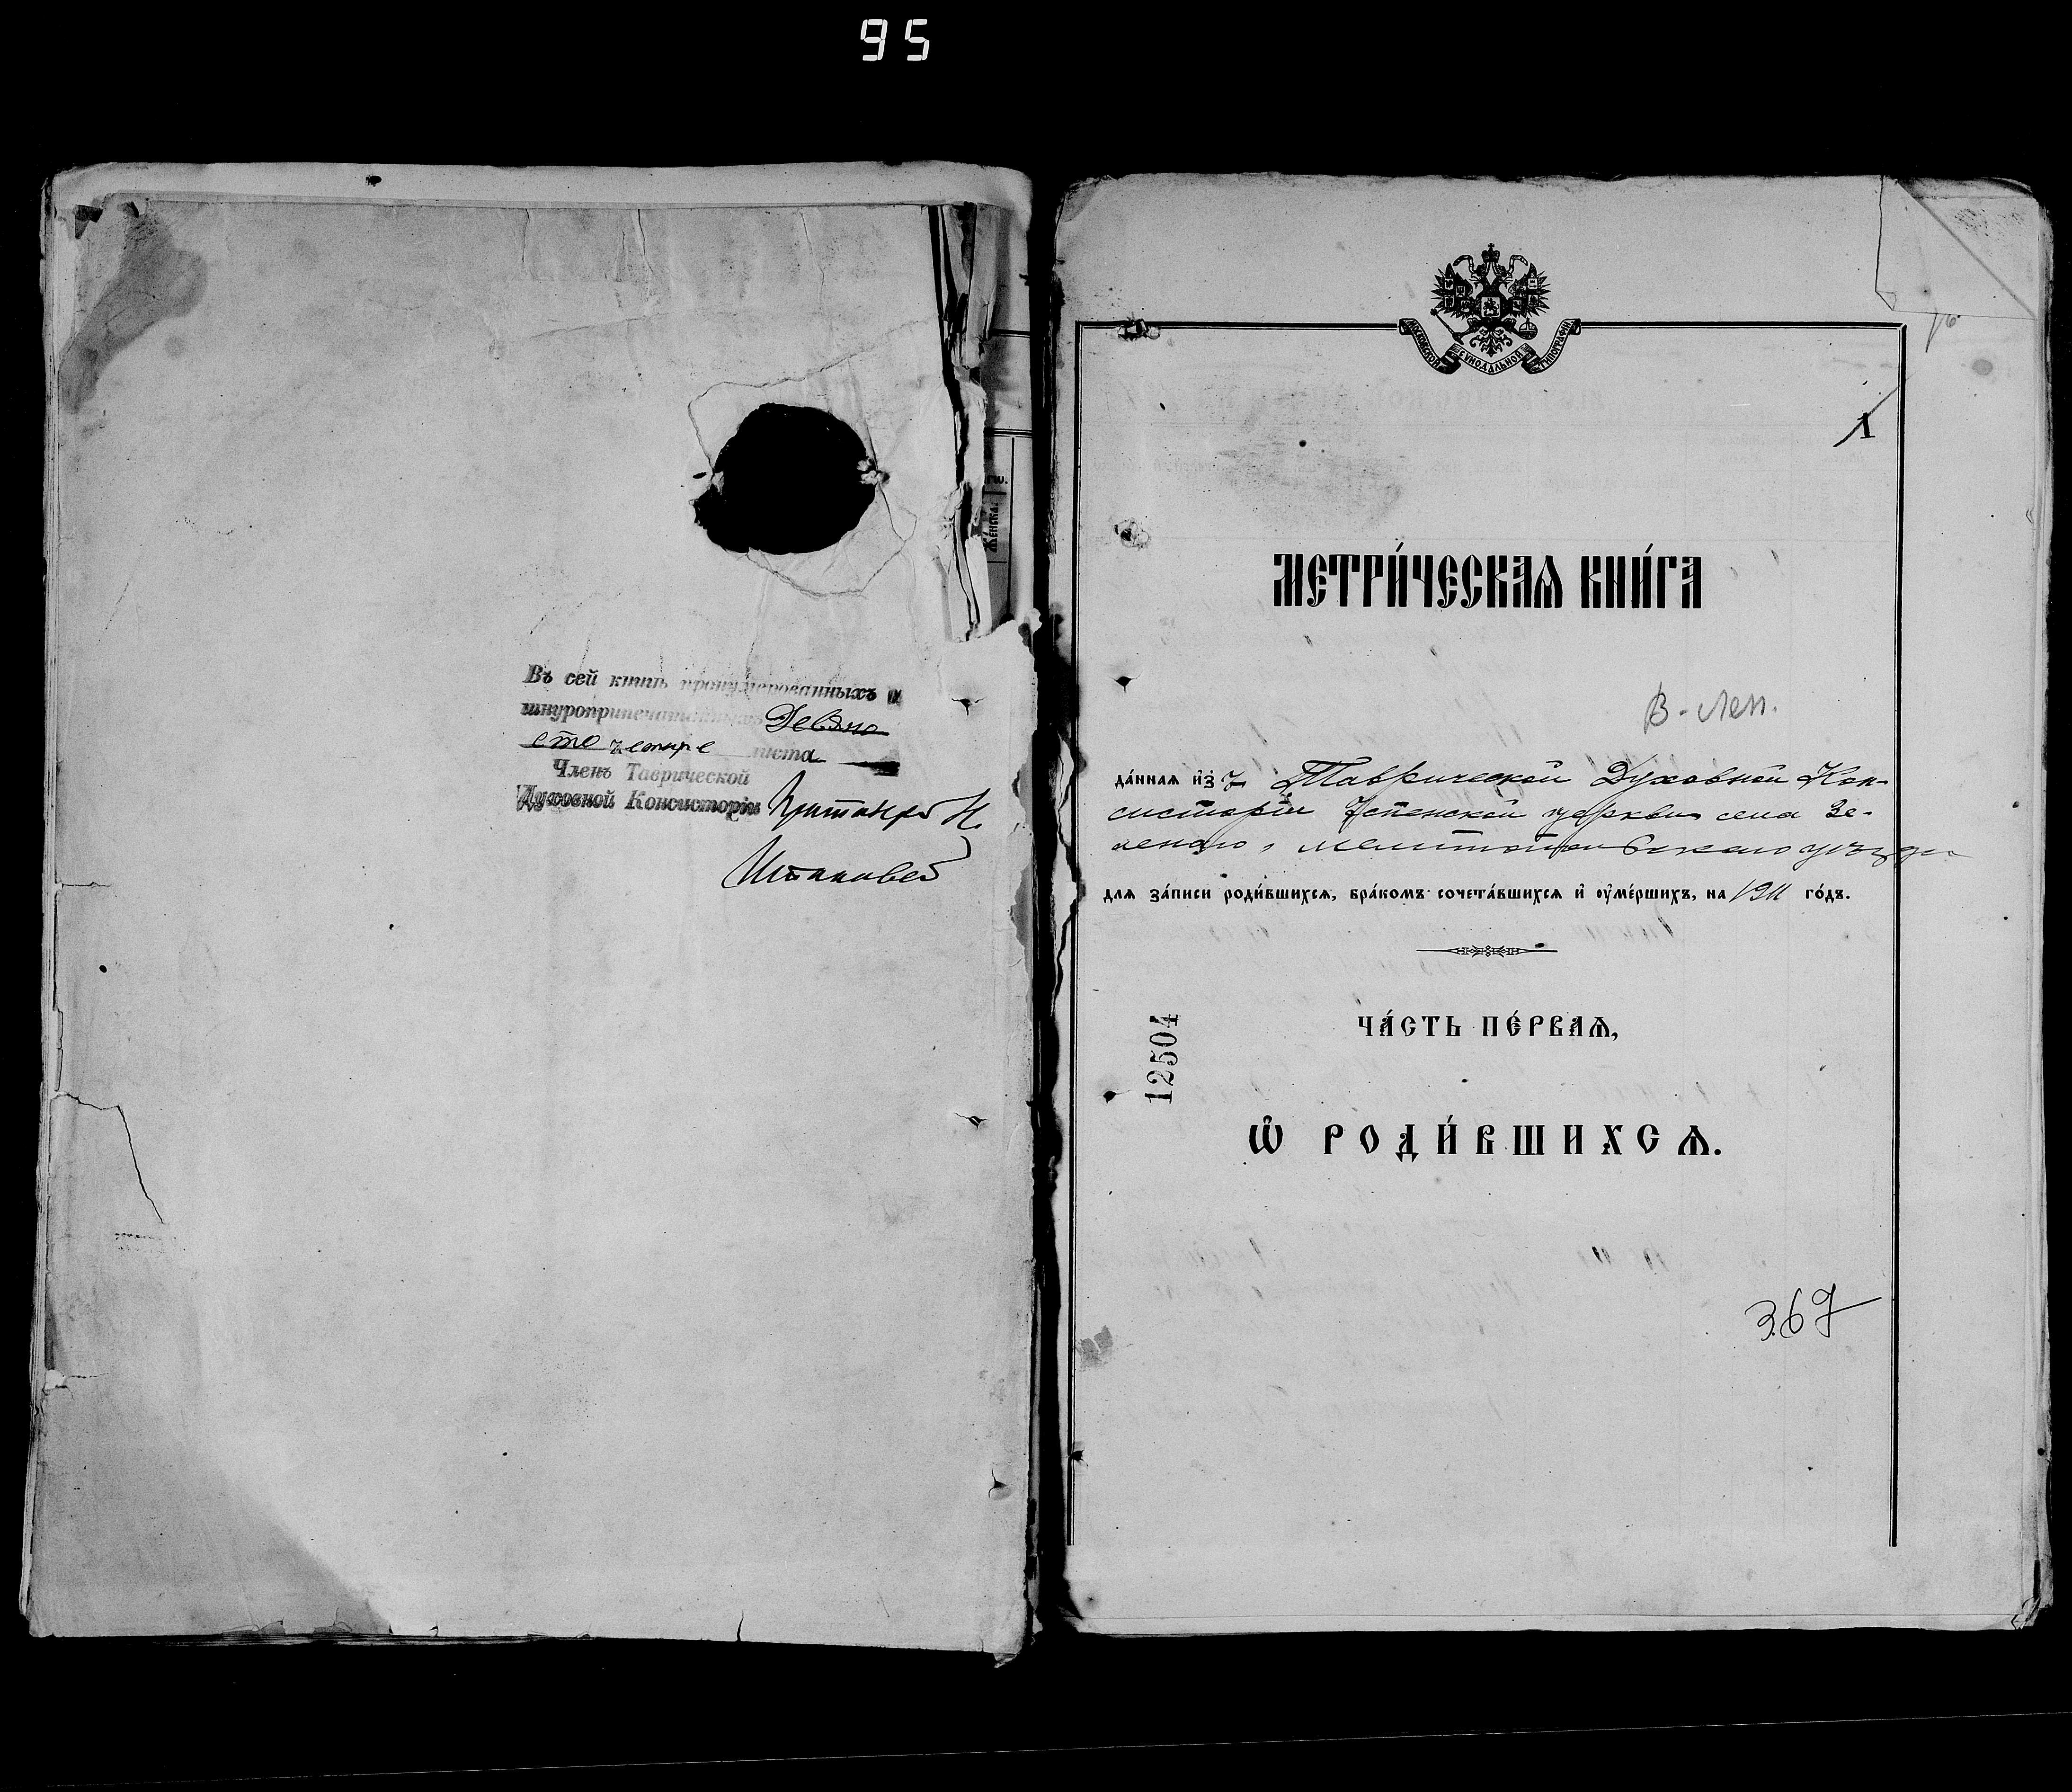 95
Въ сей книгѣ пронумерованныхъ и
шнуроприпечатанныхъ Девяно
сто четыре листа
Членъ Таврической
Духовной Консисторіи
Женска.
МОСКОВСКОЙ СѴНОДАЛЬНОЙ ТИПОГРАФІИ
1
МЕТРИ́ЧЕСКАѦ КНИ́ГА
В-Леп.
да́ннаѧ и҆зъ Таврической Духовной Кон-
систоріи Успенской церкви села Зе-
ленаго, мелитопольскаго уѣзда
длѧ за́писи роди́вшихсѧ, бра́комъ сочета́вшихсѧ и҆ ᲂу҆ме́ршихъ, на 1911 го́дъ.
ЧА́СТЬ ПЕ́РВАѦ,
Ѡ҆ РОДИ́ВШИХСѦ.
12504
369